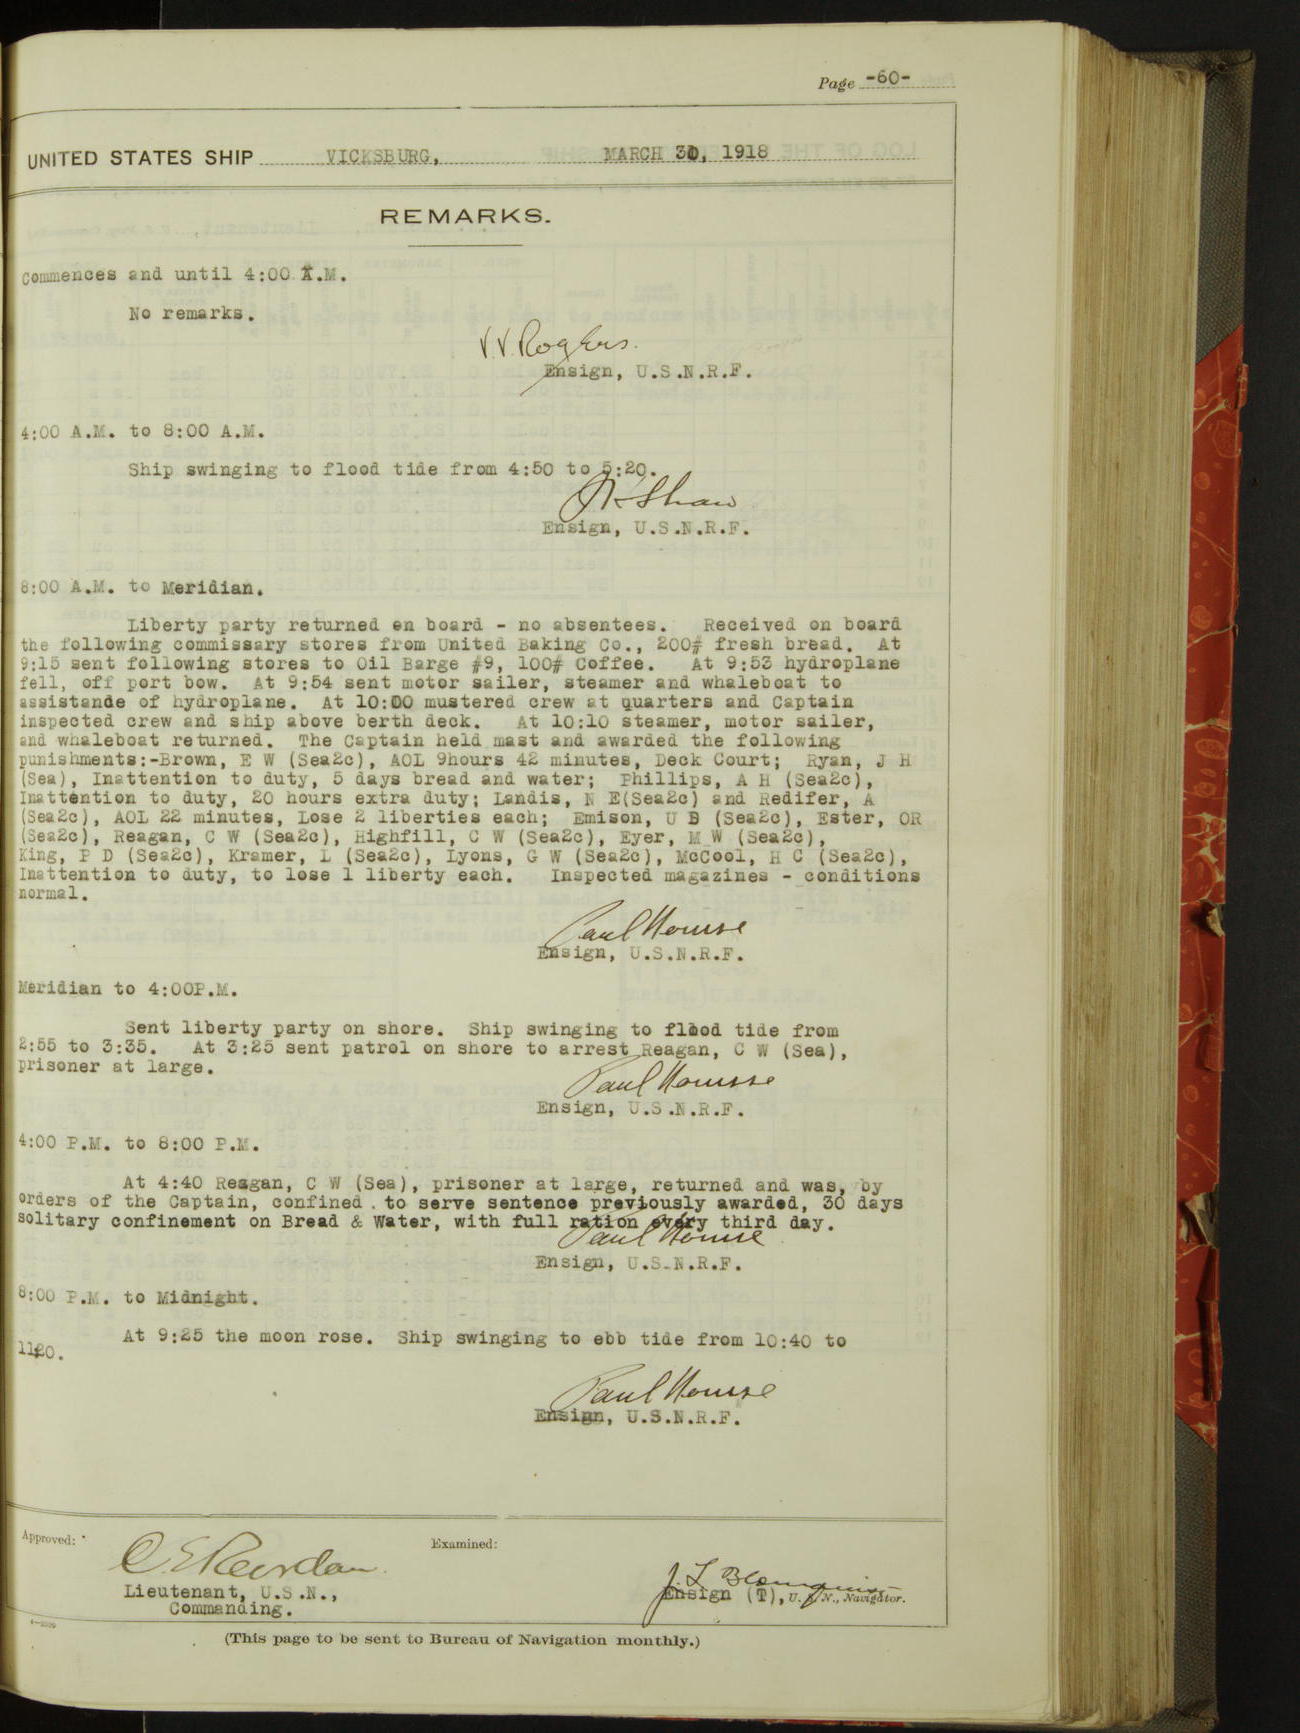 Page -60-
UNITED STATES SHIP VICKSBURG, MARCH 30, 1918
REMARKS.
Commences and until 4:00 A.M.
No remarks.
V.V. Rogers.
Ensign, U.S.N.R.F.
4:00 A.M. to 8:00 A.M.
Ship swinging to flood tide from 4:50 to 5:20.
Shaw
Ensign, U.S.N.R.F.
8:00 A.M. to Meridian.
Liberty party returned on board - no absentees. Received on board
the following commissary stores from United Baking Co., 200# fresh bread. At
9:15 sent following stores to Oil Barge #9, 100# Coffee. At 9:53 hydroplane
fell, off port bow. At 9:54 sent motor sailer, steamer and whaleboat to
assistande of hydroplane. At 10:00 mustered crew at quarters and Captain
inspected crew and ship above berth deck. At 10:10 steamer, motor sailer,
and whaleboat returned. The Captain held mast and awarded the following
punishments:-Brown, E W (Sea2c), AOL 9hours 42 minutes, Deck Court; Ryan, J H
(Sea), Inattention to duty, 5 days bread and water; Phillips, A H (Sea2c),
Inattention to duty, 20 hours extra duty; Landis, N E(Sea2c) and Redifer, A
(Sea2c), AOL 22 minutes, Lose 2 liberties each; Emison, U B (Sea2c), Ester, OR
(Sea2c), Reagan, C W (Sea2c), Highfill, C W (Sea2c), Eyer, M W (Sea2c),
King, P D (Sea2c), Kramer, L (Sea2c), Lyons, G W (Sea2c), McCool, H C (Sea2c),
Inattention to duty, to lose 1 liberty each. Inspected magazines - conditions
normal.
Paul
Ensign, U.S.N.R.F.
Meridian to 4:00P.M.
Sent liberty party on shore. Ship swinging to flood tide from
2:55 to 3:35. At 3:25 sent patrol on shore to arrest Reagan, C W (Sea),
prisoner at large.
Paul
Ensign, U.S.N.R.F.
4:00 P.M. to 8:00 P.M.
At 4:40 Reagan, C W (Sea), prisoner at large, returned and was, by
orders of the Captain, confined . to serve sentence previously awarded, 30 days
solitary confinement on Bread & Water, with full ration every third day.
Paul
Ensign, U.S.N.R.F.
8:00 P.M. to Midnight.
At 9:25 the moon rose. Ship swinging to ebb tide from 10:40 to
1120.
Paul
Ensign, U.S.N.R.F.
Approved: Examined:
C E Reordan
Lieutenant, U.S.N.,
Commanding.
J. L
Ensign (T), U. S. N., Navigator.
(This page to be sent to Bureau of Navigation monthly.)